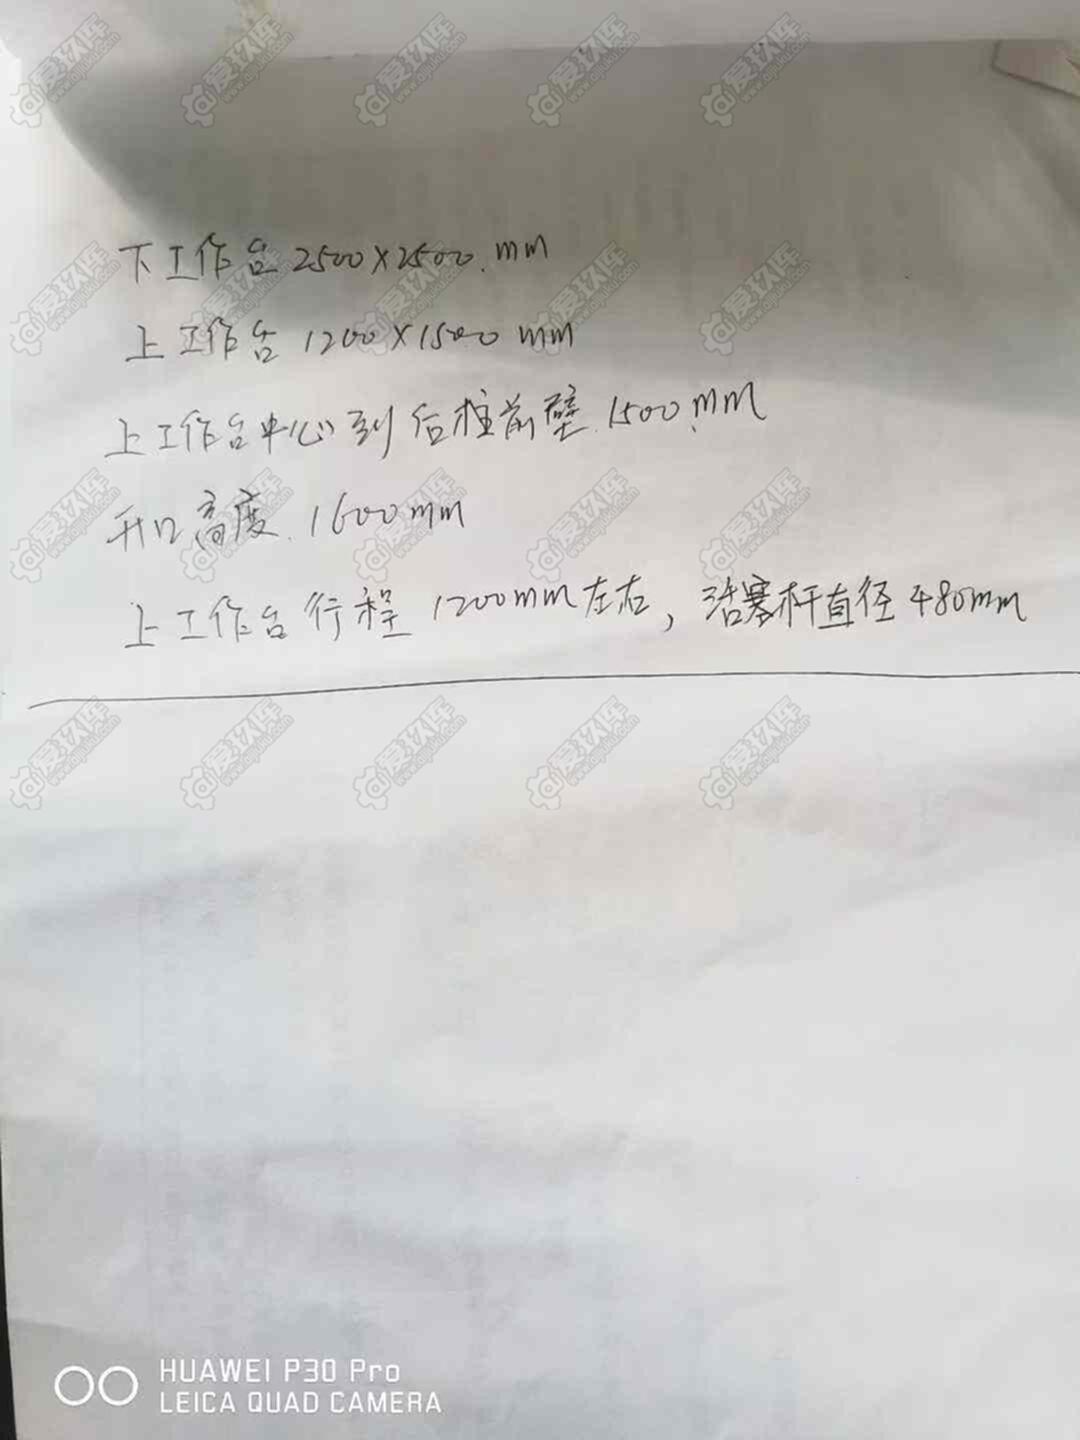 下工作台 2500×2500.mm
上工作台 1200×1500 mm
上工作台中心到后柱前壁.1500.mm
开口高度.1600mm
上工作台行程 1200mm左右，活塞杆直径480mm
爱玖库
www.aijiuku.com
HUAWEI P30 Pro
LEICA QUAD CAMERA